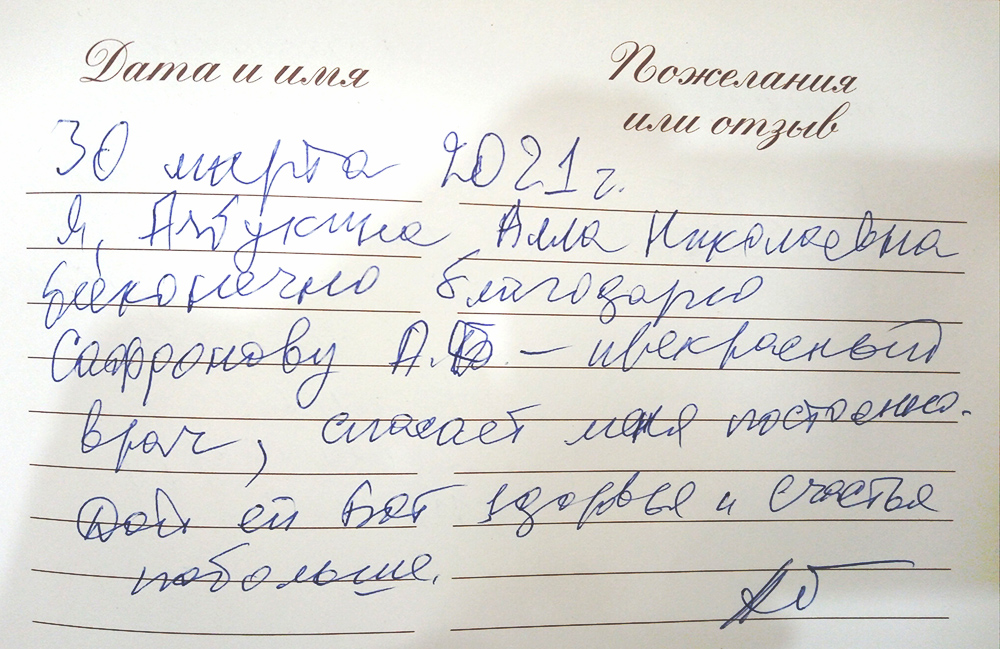 Дата и имя
Пожелания
или отзыв
30 марта 2021 г.
Я, Алла Николаевна
бесконечно благодарю
Сафронову А. – прекрасный
врач, спасает меня постоянно.
Дай ей Бог здоровья и счастья
побольше.